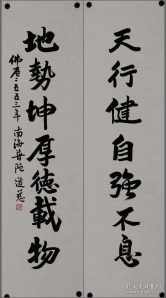 天行健自强不息
地勢坤厚德載物
佛历二五五三年 南海普陀 道慈